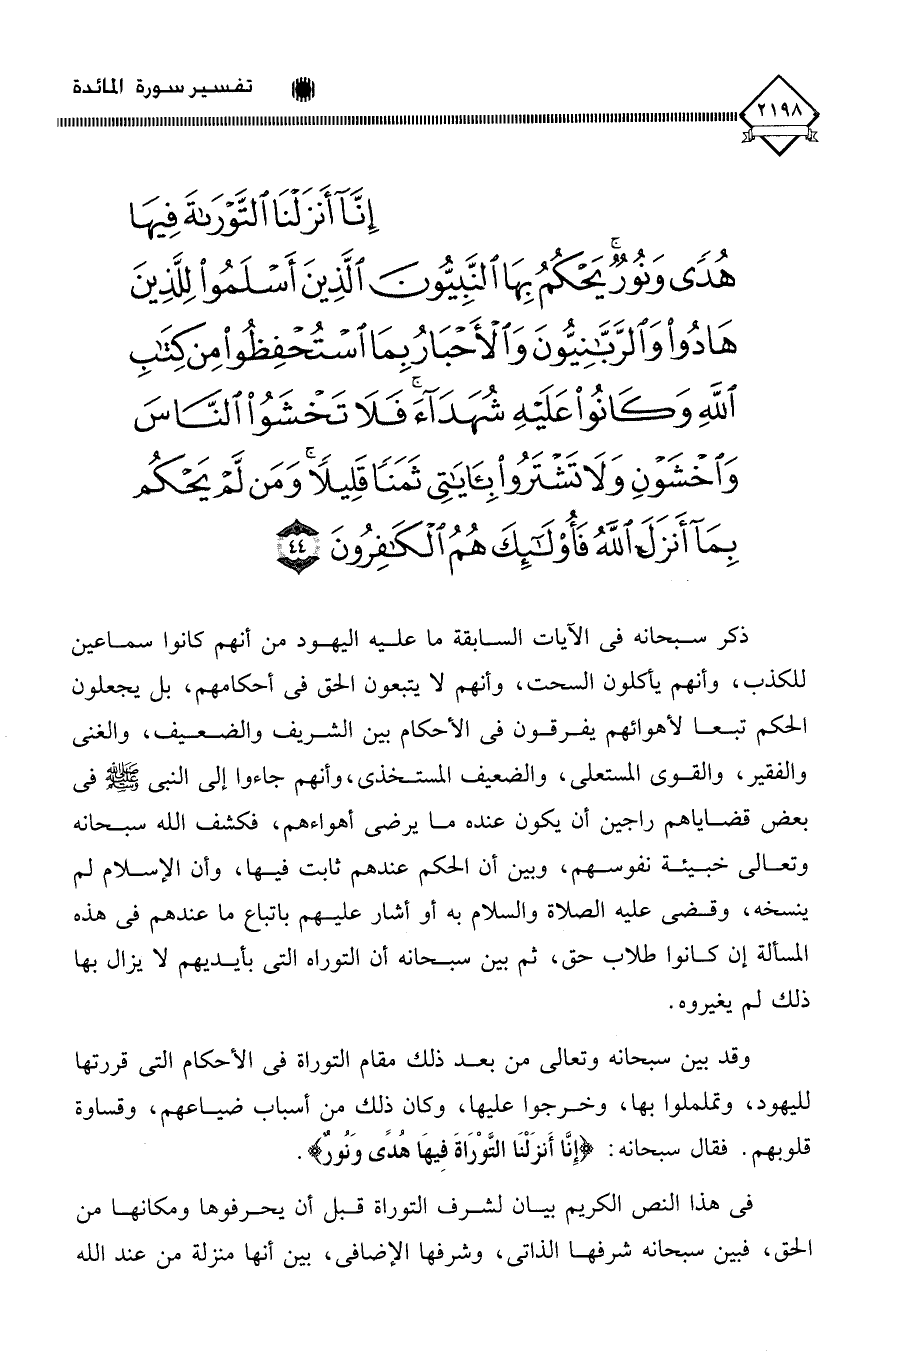 ٢١٩٨
تفسير سورة المائدة
إِنَّآ أَنزَلْنَا ٱلتَّوْرَىٰةَ فِيهَا
هُدًى وَنُورٌ ۚ يَحْكُمُ بِهَا ٱلنَّبِيُّونَ ٱلَّذِينَ أَسْلَمُوا۟ لِلَّذِينَ
هَادُوا۟ وَٱلرَّبَّـٰنِيُّونَ وَٱلْأَحْبَارُ بِمَا ٱسْتُحْفِظُوا۟ مِن كِتَـٰبِ
ٱللَّهِ وَكَانُوا۟ عَلَيْهِ شُهَدَآءَ ۚ فَلَا تَخْشَوُا۟ ٱلنَّاسَ
وَٱخْشَوْنِ وَلَا تَشْتَرُوا۟ بِـَٔايَـٰتِى ثَمَنًا قَلِيلًا ۚ وَمَن لَّمْ يَحْكُم
بِمَآ أَنزَلَ ٱللَّهُ فَأُو۟لَـٰٓئِكَ هُمُ ٱلْكَـٰفِرُونَ ٤٤
ذكر سبحانه فى الآيات السابقة ما عليه اليهود من أنهم كانوا سماعين
للكذب، وأنهم يأكلون السحت، وأنهم لا يتبعون الحق فى أحكامهم، بل يجعلون
الحكم تبعا لأهوائهم يفرقون فى الأحكام بين الشريف والضعيف، والغنى
والفقير، والقوى المستعلى، والضعيف المستخذى، وأنهم جاءوا إلى النبى ﷺ فى
بعض قضاياهم راجين أن يكون عنده ما يرضى أهواءهم، فكشف الله سبحانه
وتعالى خبيئة نفوسهم، وبين أن الحكم عندهم ثابت فيها، وأن الإسلام لم
ينسخه، وقضى عليه الصلاة والسلام به أو أشار عليهم باتباع ما عندهم فى هذه
المسألة إن كانوا طلاب حق، ثم بين سبحانه أن التوراه التى بأيديهم لا يزال بها
ذلك لم يغيروه.
وقد بين سبحانه وتعالى من بعد ذلك مقام التوراة فى الأحكام التى قررتها
لليهود، وتململوا بها، وخرجوا عليها، وكان ذلك من أسباب ضياعهم، وقساوة
قلوبهم. فقال سبحانه: ﴿إِنَّا أَنزَلْنَا التَّوْرَاةَ فِيهَا هُدًى وَنُورٌ﴾.
فى هذا النص الكريم بيان لشرف التوراة قبل أن يحرفوها ومكانها من
الحق، فبين سبحانه شرفها الذاتى، وشرفها الإضافى، بين أنها منزلة من عند الله